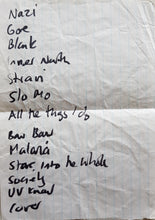 Nazi
Goe
Blank
Inner North
Strani
Slo Mo
All the things I do
Baw Baw
Malaria
Stare into the Whole
Society
UV Knew
Cover